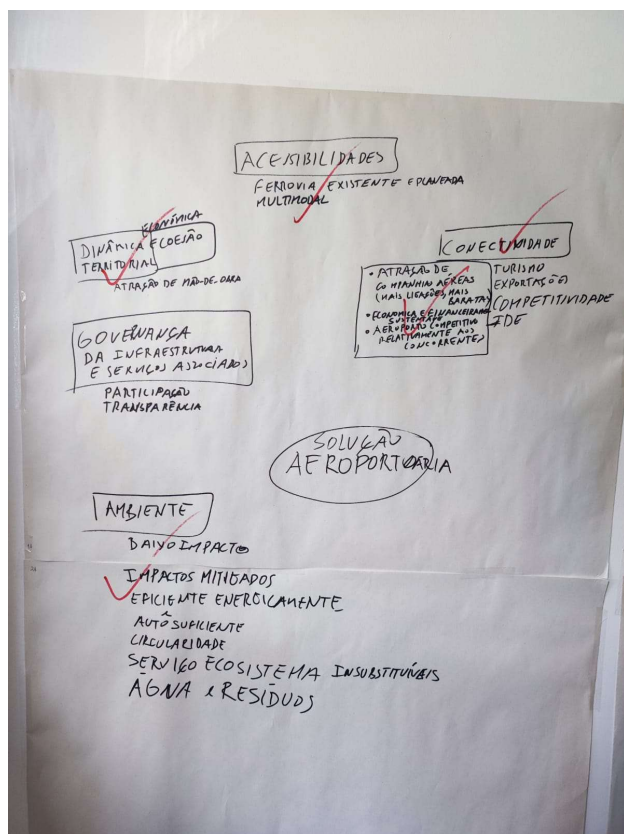 ACESSIBILIDADES
FERROVIA EXISTENTE E PLANEADA
MULTIMODAL
ECONÓMICA
DINÂMICA E COESÃO
TERRITORIAL
ATRAÇÃO DE MÃO-DE-OBRA
CONECTIVIDADE
TURISMO
EXPORTAÇÕES
COMPETITIVIDADE
IDE
• ATRAÇÃO DE
COMPANHIA AÉREAS
(MAIS LIGAÇÕES, MAIS
BARATAS)
• ECONOMICA E FINANCEIRAMENTE
SUSTENTÁVEL
• AEROPORTO COMPETITIVO
RELATIVAMENTE AOS
CONCORRENTES
GOVERNANÇA
DA INFRAESTRUTURA
E SERVIÇOS ASSOCIADOS
PARTICIPAÇÃO
TRANSPARÊNCIA
SOLUÇÃO
AEROPORTUARIA
AMBIENTE
BAIXO IMPACTO
IMPACTOS MITIGADOS
EFICIENTE ENERGICAMENTE
AUTOSUFICIENTE
CIRCULARIDADE
SERVIÇO ECOSISTEMA INSUBSTITUÍVEIS
ÁGUA e RESÍDUOS